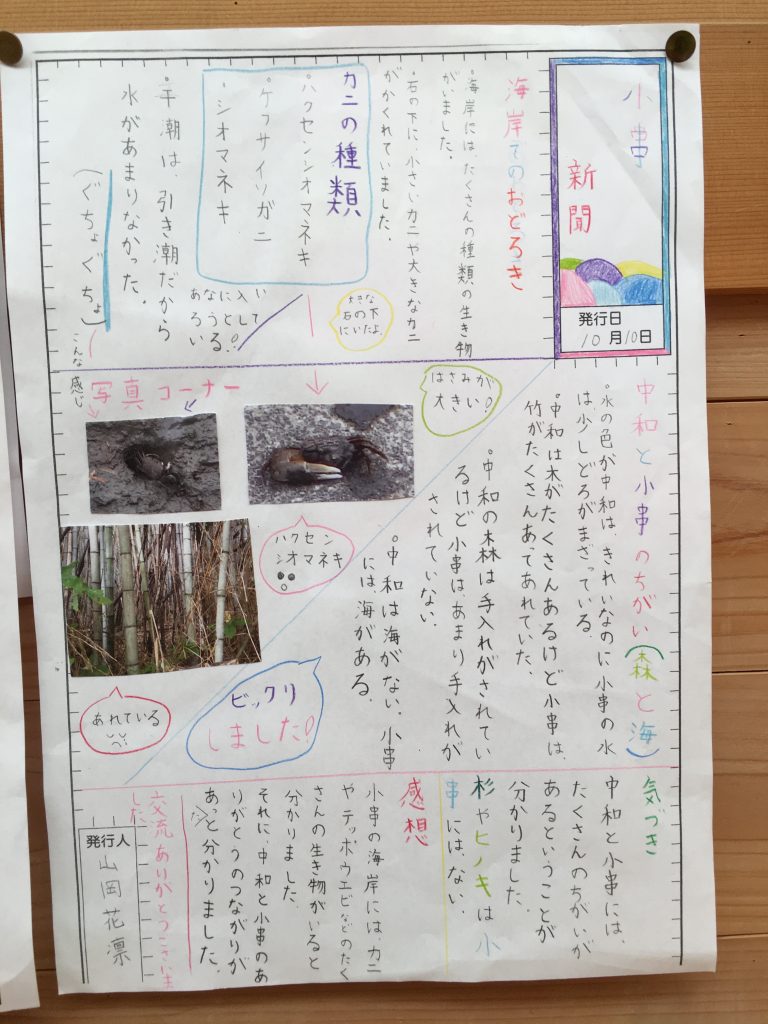 小串
新聞
発行日
10月10日
海岸でのおどろき
・海岸には、たくさんの種類の生き物
がいました。
・石の下に、小さいカニや大きなカニ
がかくれていました。
カニの種類
・ハクセンシオマネキ
・ケフサイソガニ
・シオマネキ
・干潮は、引き潮だから
水があまりなかった。
(ぐちょぐちょ)
こんな感じ
大きな
石の下
にいたよ。
あなに入いて
ろうとし
いる。
中和と小串のちがい(森と海)
・水の色が中和は、きれいなのに小串の水
は、少しどろがまざっている。
・中和は木がたくさんあるけど小串は、
竹がたくさんあってあれていた。
・中和の森は手入れがされてい
るけど小串は、あまり手入れが
されていない。
・中和は海がない。小串
には海がある。
はさみが
大きい!
写真コーナー
ハクセン
シオマネキ
あれている
ビックリ
しました!
気づき
中和と小串には、
たくさんのちがいが
あるということが
分かりました。
杉やヒノキは小
串には、ない。
感想
小串の海岸には、カニ
やテッポウエビなどのたく
さんの生き物がいると
分かりました。
それに、中和と小串のあ
りがとうのつながりが
あっと分かりました。
交流ありがとうございま
した。
発行人
山岡花凛